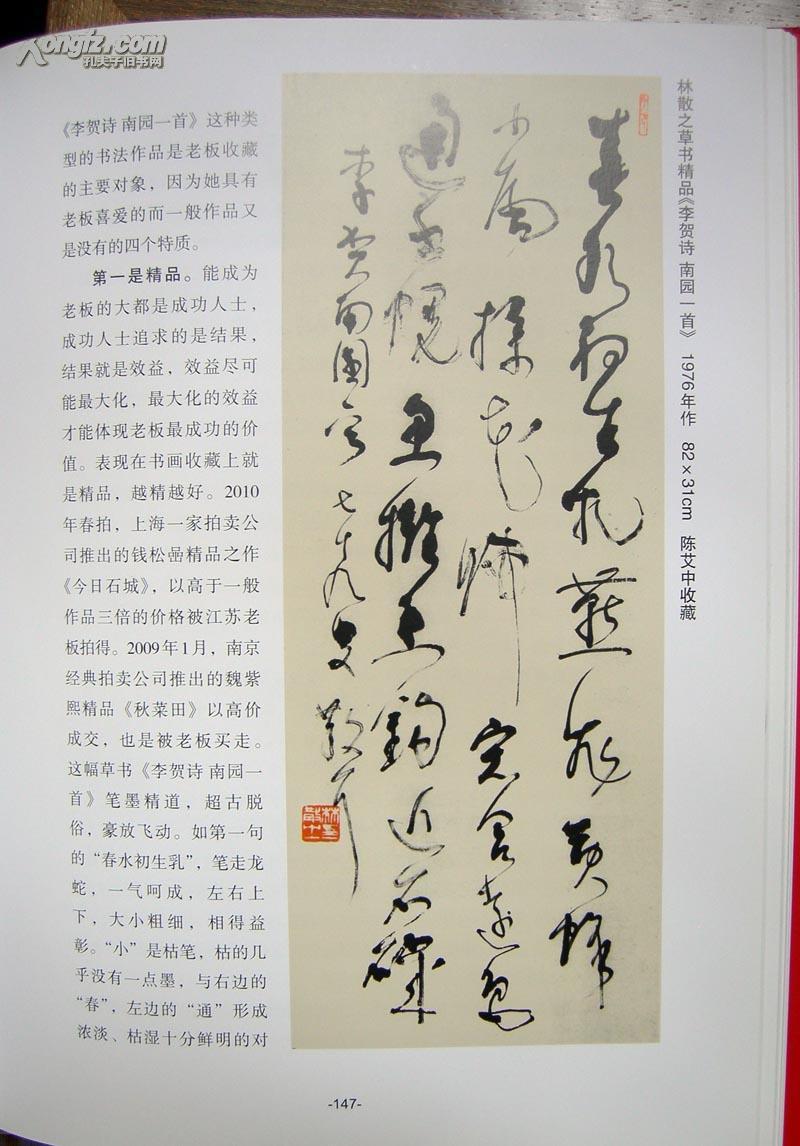 Kongfz.com
孔夫子旧书网
林散之草书精品《李贺诗 南园一首》 1976年作 82×31cm 陈艾中收藏
春水初生乳燕飛黃蜂
小尾撲花歸窗含遠色
通書幌魚擁香鉤近石磯
李賀南園 七十九叟散耳
《李贺诗 南园一首》这种类
型的书法作品是老板收藏
的主要对象，因为她具有
老板喜爱的而一般作品又
是没有的四个特质。
第一是精品。能成为
老板的大都是成功人士，
成功人士追求的是结果，
结果就是效益，效益尽可
能最大化，最大化的效益
才能体现老板最成功的价
值。表现在书画收藏上就
是精品，越精越好。2010
年春拍，上海一家拍卖公
司推出的钱松嵒精品之作
《今日石城》，以高于一般
作品三倍的价格被江苏老
板拍得。2009年1月，南京
经典拍卖公司推出的魏紫
熙精品《秋菜田》以高价
成交，也是被老板买走。
这幅草书《李贺诗 南园一
首》笔墨精道，超古脱
俗，豪放飞动。如第一句
的“春水初生乳”，笔走龙
蛇，一气呵成，左右上
下，大小粗细，相得益
彰。“小”是枯笔，枯的几
乎没有一点墨，与右边的
“春”，左边的“通”形成
浓淡、枯湿十分鲜明的对
-147-